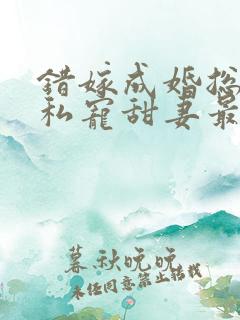 错嫁成婚总
私宠甜妻最
暮秋晚晚
未经同意禁止转载